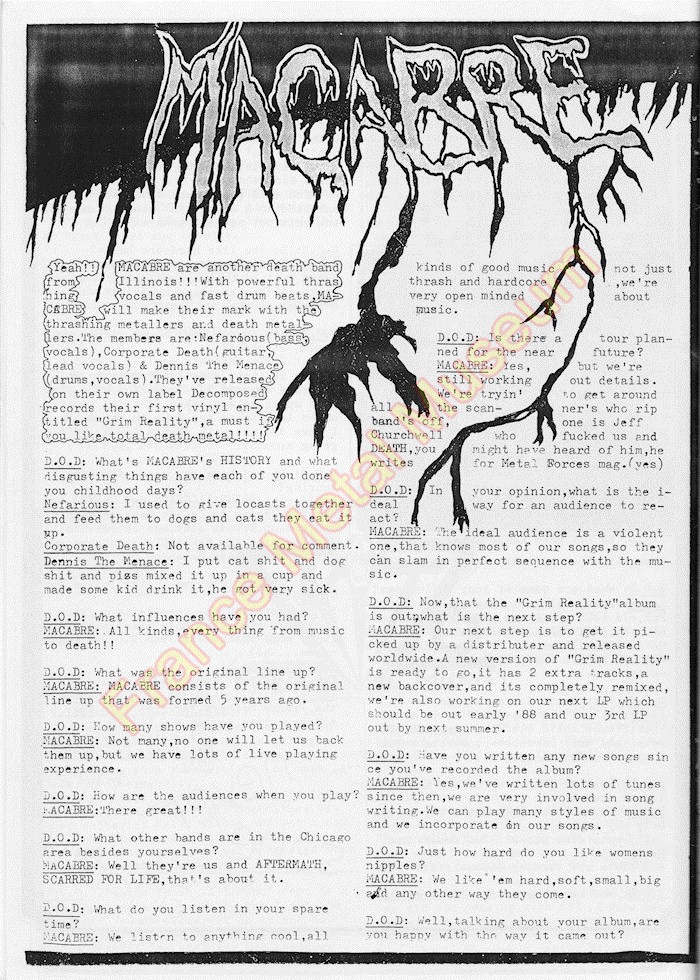 MACABRE
Yeah!! MACABRE are another death band
from Illinois!!!With powerful thras
hing vocals and fast drum beats,MA-
CABRE will make their mark with the
thrashing metallers and death metal-
lers.The members are:Nefarious(bass,
vocals),Corporate Death(guitar,
lead vocals) & Dennis The Menace
(drums,vocals).They've released
on their own label Decomposed
records their first vinyl en-
titled "Grim Reality",a must if
you like total death metal!!!!
D.O.D: What's MACABRE's HISTORY and what
disgusting things have each of you done
you childhood days?
Nefarious: I used to give locasts together
and feed them to dogs and cats they eat it
up.
Corporate Death: Not available for comment.
Dennis The Menace: I put cat shit and dog
shit and piss mixed it up in a cup and
made some kid drink it,he got very sick.
D.O.D: What influences have you had?
MACABRE: All kinds,every thing from music
to death!!
D.O.D: What was the original line up?
MACABRE: MACABRE consists of the original
line up that was formed 5 years ago.
D.O.D: How many shows have you played?
MACABRE: Not many,no one will let us back
them up,but we have lots of live playing
experience.
D.O.D: How are the audiences when you play?
MACABRE:There great!!!
D.O.D: What other bands are in the Chicago
area besides yourselves?
MACABRE: Well they're us and AFTERMATH,
SCARRED FOR LIFE,that's about it.
D.O.D: What do you listen in your spare
time?
MACABRE: We listen to anything cool,all
kinds of good music not just
thrash and hardcore ,we're
very open minded about
music.
D.O.D: Is there a tour plan-
ned for the near future?
MACABRE: Yes, but we're
still working out details.
We're tryin' to get around
all the scan- ner's who rip
band's off, one is Jeff
Churchell who fucked us and
DEATH,you might have heard of him,he
writes for Metal Forces mag.(yes)
D.O.D: In your opinion,what is the i-
deal way for an audience to re-
act?
MACABRE: The ideal audience is a violent
one,that knows most of our songs,so they
can slam in perfect sequence with the mu-
sic.
D.O.D: Now,that the "Grim Reality"album
is out,what is the next step?
MACABRE: Our next step is to get it pi-
cked up by a distributer and released
worldwide.A new version of "Grim Reality"
is ready to go,it has 2 extra tracks,a
new backcover,and its completely remixed,
we're also working on our next LP which
should be out early '88 and our 3rd LP
out by next summer.
D.O.D: Have you written any new songs sin
ce you've recorded the album?
MACABRE: Yes,we've written lots of tunes
since then,we are very involved in song
writing.We can play many styles of music
and we incorporate on our songs.
D.O.D: Just how hard do you like womens
nipples?
MACABRE: We like 'em hard,soft,small,big
and any other way they come.
D.O.D: Well,talking about your album,are
you happy with the way it came out?
France Metal Museum